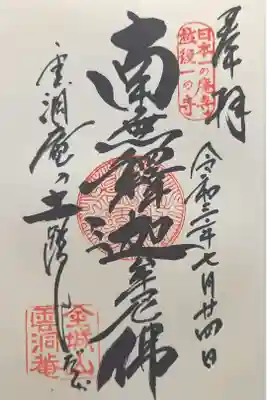 奉拝
日本一の庵寺
越後一の寺
南無釋迦牟尼佛
令和三年七月廿四日
雲洞庵の土踏
金城山
雲洞庵